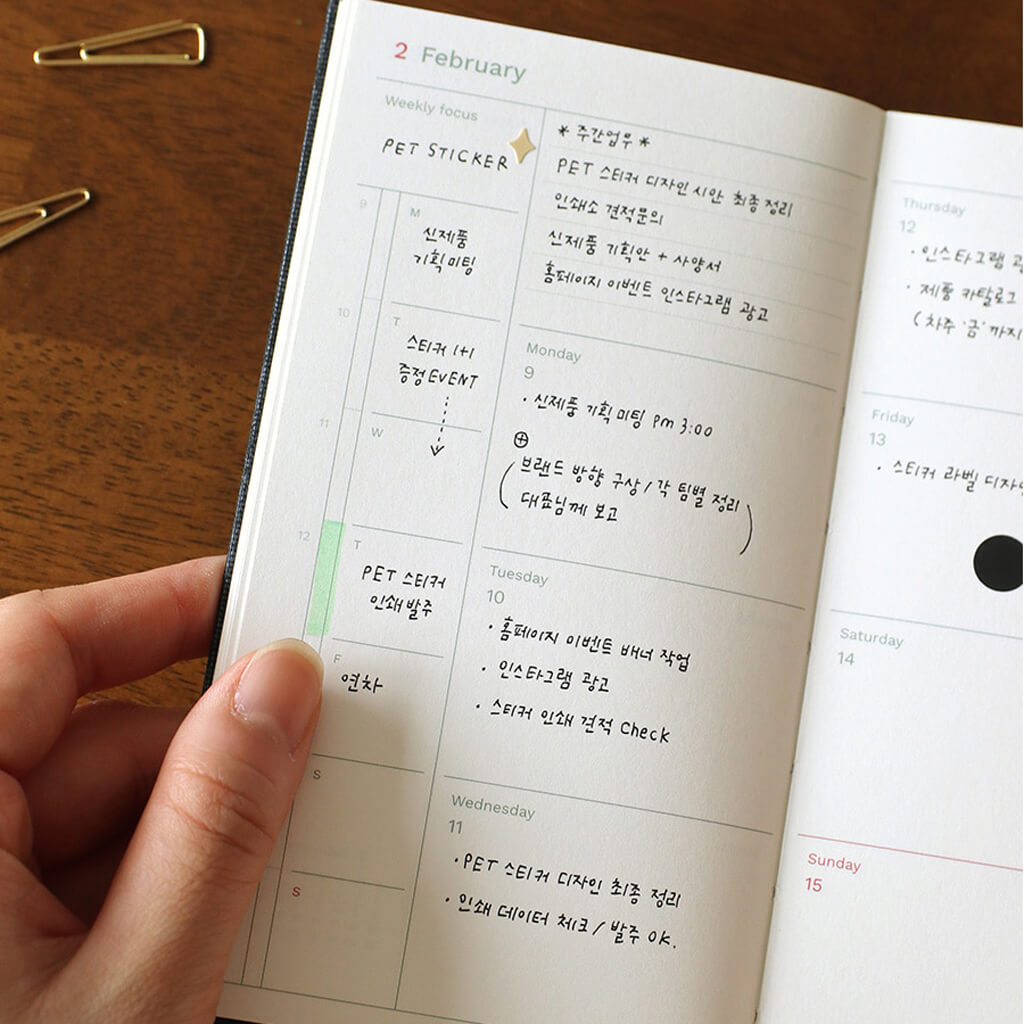 2 February
Weekly focus
PET STICKER
9
M
신제품
기획미팅
10
T
스티커 1+1
증정 EVENT
11
W
12
T
PET 스티커
인쇄 발주
F
연차
S
S
* 주간업무 *
PET 스티커 디자인 시안 최종 정리
인쇄소 견적문의
신제품 기획안 + 사양서
홈페이지 이벤트 인스타그램 광고
Monday
9
· 신제품 기획 미팅 pm 3:00
⊕
( 브랜드 방향 구상 / 각 팀별 정리
대표님께 보고 )
Tuesday
10
· 홈페이지 이벤트 배너 작업
· 인스타그램 광고
· 스티커 인쇄 견적 Check
Wednesday
11
· PET 스티커 디자인 최종 정리
· 인쇄 데이터 체크 / 발주 OK.
Thursday
12
· 인스타그램
· 제품 카탈로그
(차주 '금' 까지
Friday
13
· 스티커 라벨 디자인
Saturday
14
Sunday
15